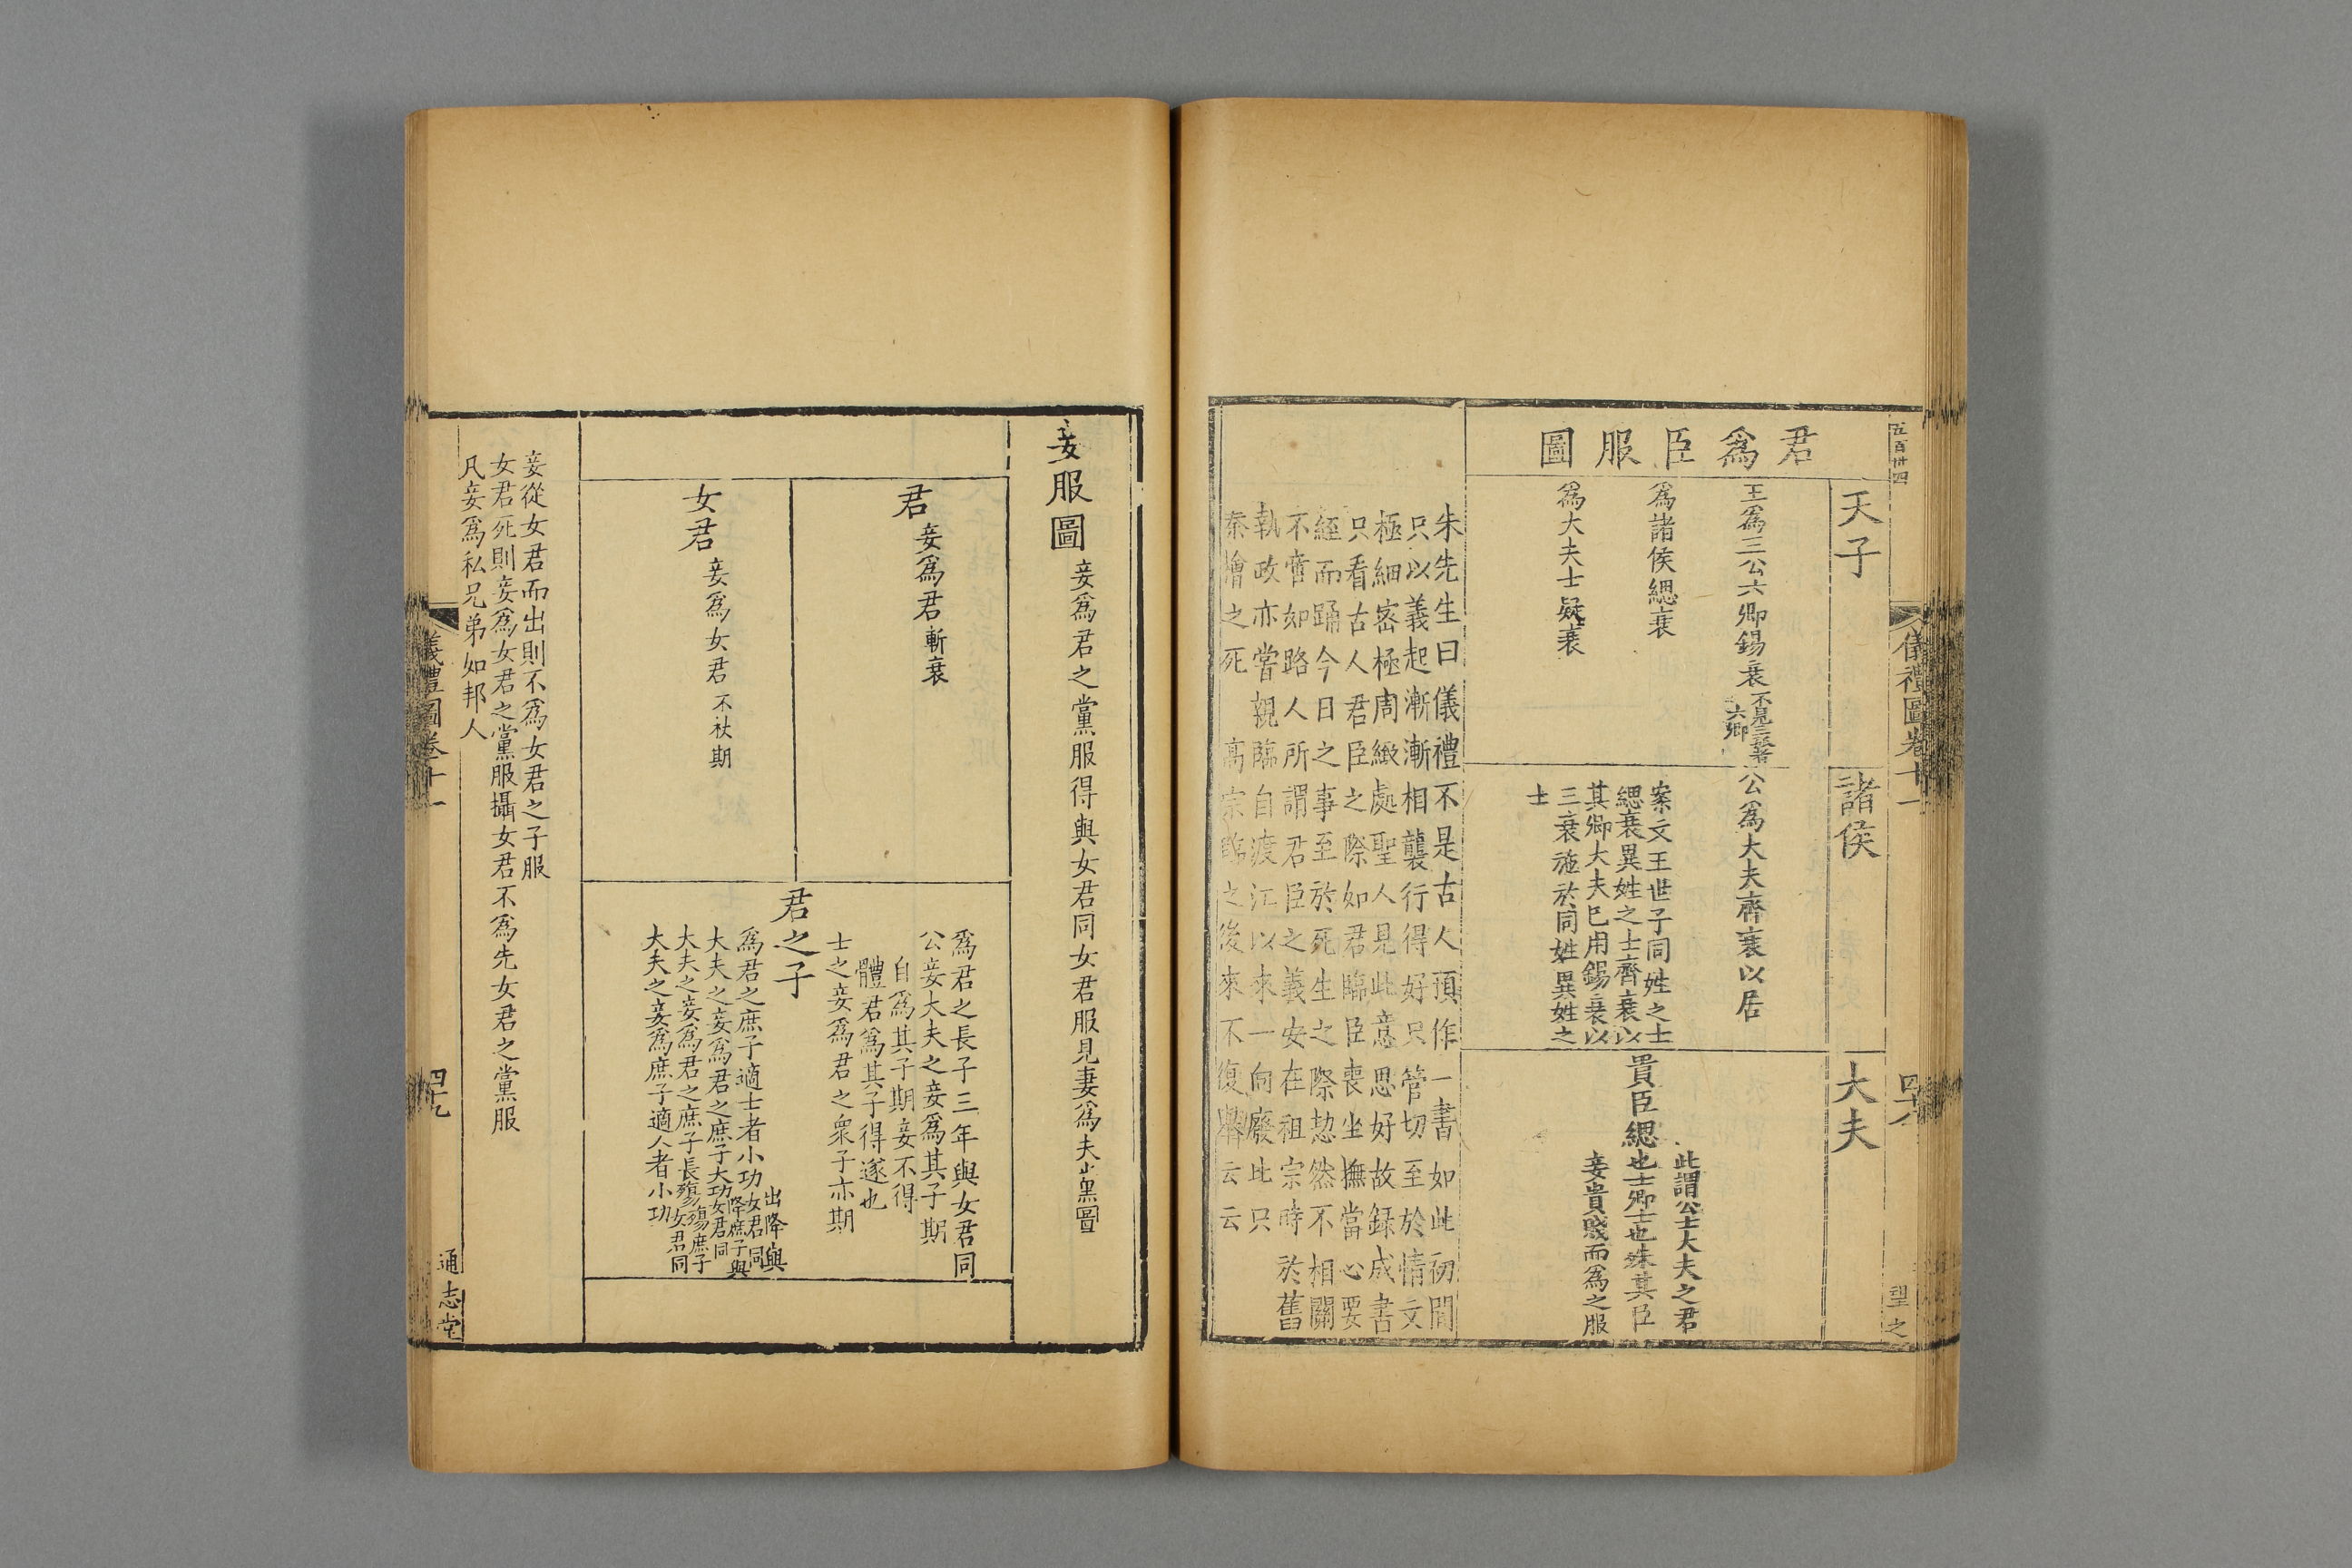 五百卅四
儀禮圖卷十一
四十八
望之
君爲臣服圖
天子
王爲三公六卿錫衰
不見三孤者
六卿
爲諸侯緦衰
爲大夫士疑衰
諸侯
公爲大夫齊衰以居
案文王世子同姓之士
緦衰異姓之士齊衰以
其卿大夫已用錫衰以
三衰施於同姓異姓之
士
大夫
貴臣緦
此謂公士大夫之君
也士卿士也殊其臣
妾貴賤而爲之服
朱先生曰儀禮不是古人預作一書如此初間
只以義起漸漸相襲行得好只管切至於情文
極細密極周緻處聖人見此意思好故録成書
只看古人君臣之際如君臨臣喪坐撫當心要
絰而踊今日之事至於死生之際恝然不相關
不啻如路人所謂君臣之義安在祖宗時於舊
執政亦嘗親臨自渡江以來一向廢此只
秦檜之死高宗臨之後來不復舉云云
妾服圖
妾爲君之黨服得與女君同女君服見妻爲夫黨圖
君
妾爲君斬衰
女君
妾爲女君不杖期
君之子
爲君之長子三年與女君同
公妾大夫之妾爲其子期
自爲其子期妾不得
體君爲其子得遂也
士之妾爲君之衆子亦期
爲君之庶子適士者小功出降與女君同
大夫之妾爲君之庶子大功降庶子與女君同
大夫之妾爲君之庶子長殤殤庶子
大夫之妾爲庶子適人者小功女君同
妾從女君而出則不爲女君之子服
女君死則妾爲女君之黨服攝女君不爲先女君之黨服
凡妾爲私兄弟如邦人
儀禮圖卷十一
四十九
通志堂